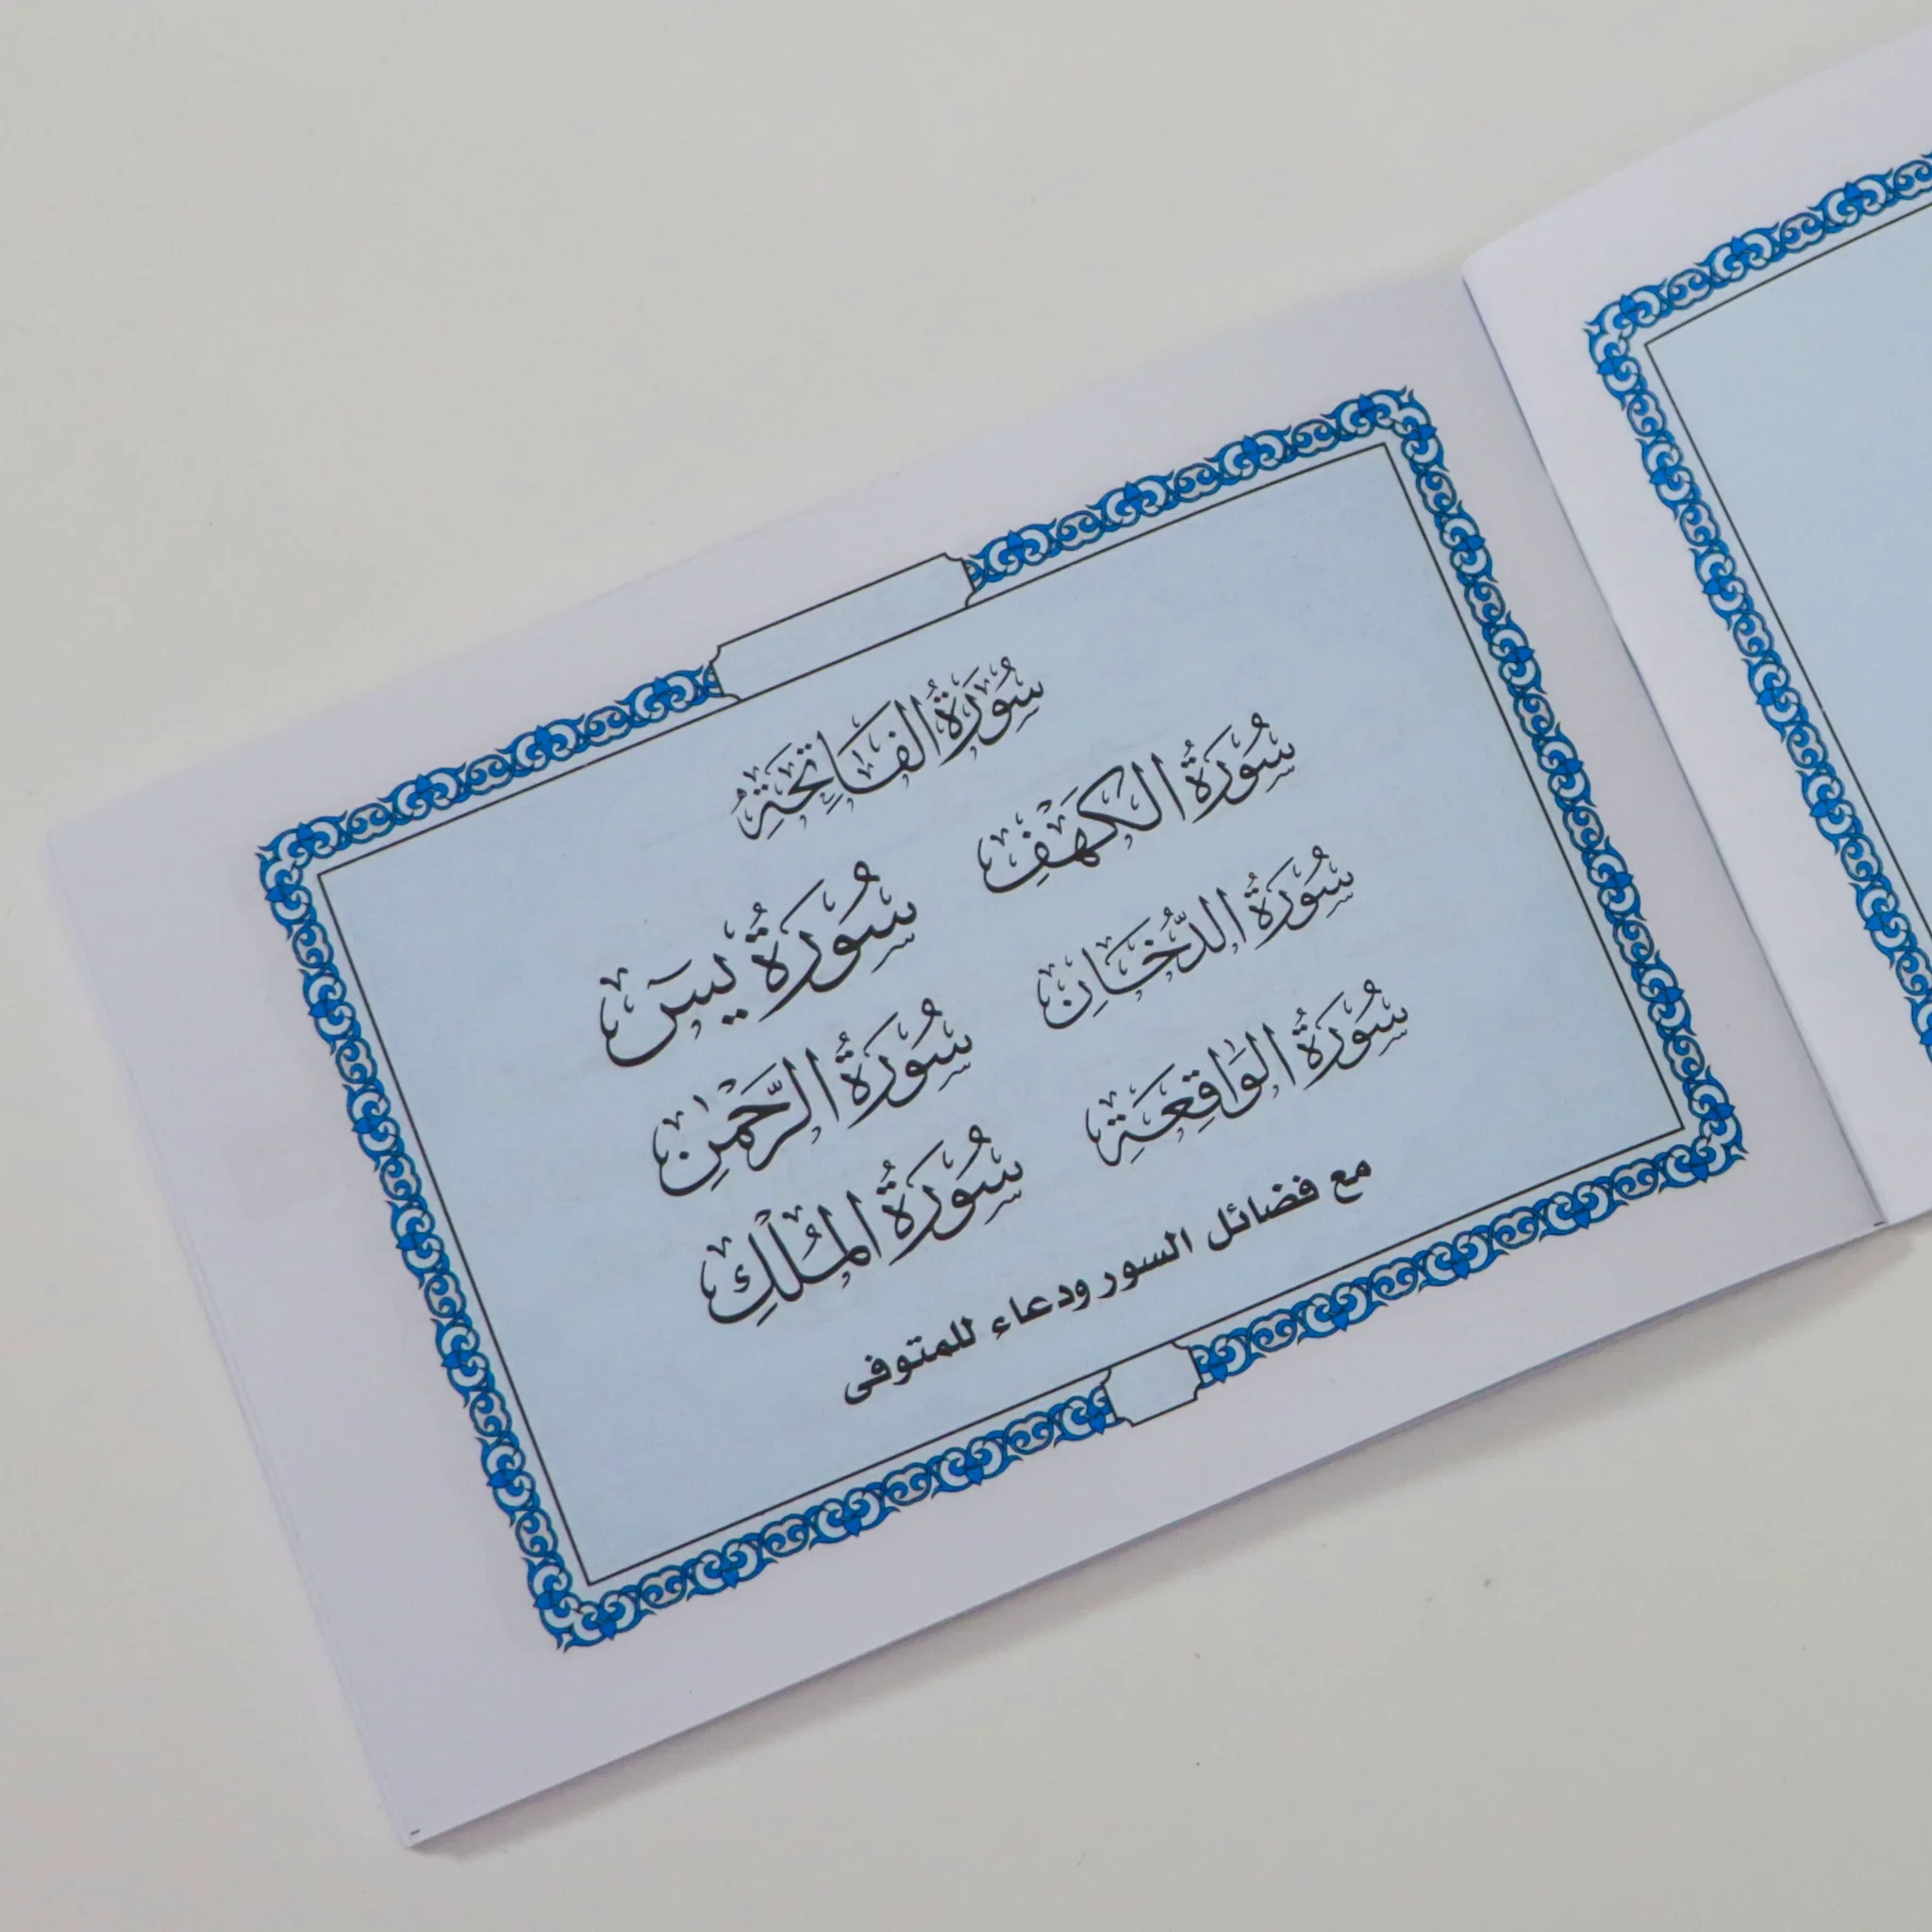 سُورَةُ الفَاتِحَةِ
سُورَةُ الكَهْفِ
سُورَةُ يسَ
سُورَةُ الدُّخَانِ
سُورَةُ الرَّحْمٰنِ
سُورَةُ الوَاقِعَةِ
سُورَةُ المُلْكِ
مع فضائل السور ودعاء للمتوفى